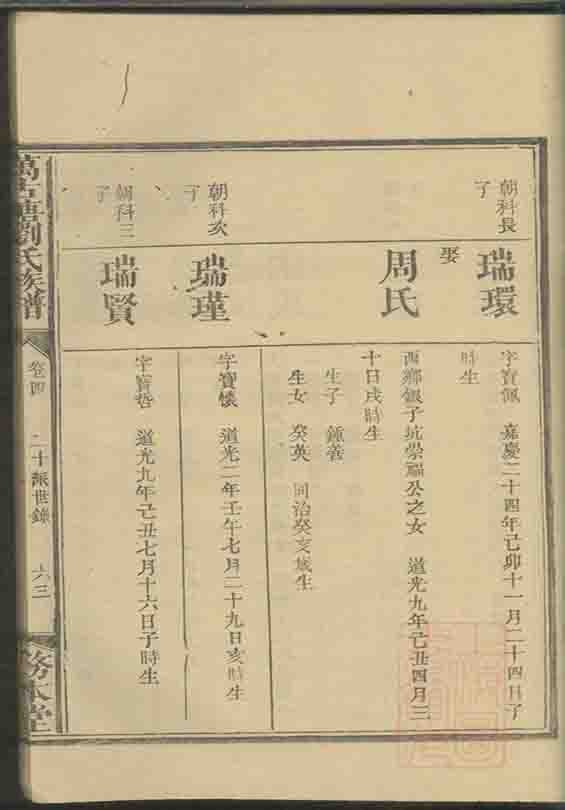 朝科長
子
瑞環
字寶佩　嘉慶二十四年己卯十一月二十四日子
時生
娶
周氏
西鄉銀子坑崇福公之女　道光九年己丑四月三
十日戌時生
生子　鍾善
生女　癸英　同治癸亥歲生
朝科次
子
瑞瑾
字寶懷　道光二年壬午七月二十九日亥時生
朝科三
子
瑞賢
字寶哲　道光九年己丑七月十六日子時生
萬古塘劉氏族譜
卷四
二十派世錄
六三
務本堂